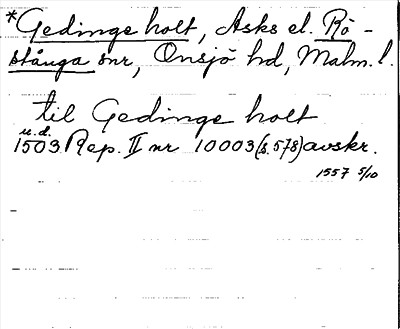 *Gedinge holt, Asks el. Rö-
stånga snr, Onsjö hd, Malm. l.
til Gedinge holt
u.d.
1503 Rep. II nr 10003 (s. 578) avskr.
1557 5/10